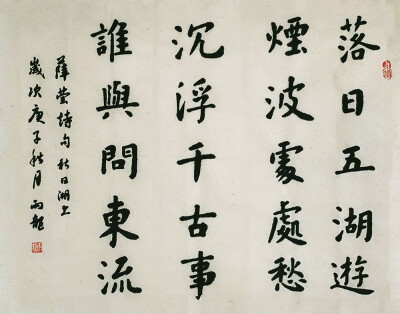 落日五湖遊
煙波處處愁
沉浮千古事
誰與問東流
薛瑩詩句秋日湖上
歲次庚子秋月